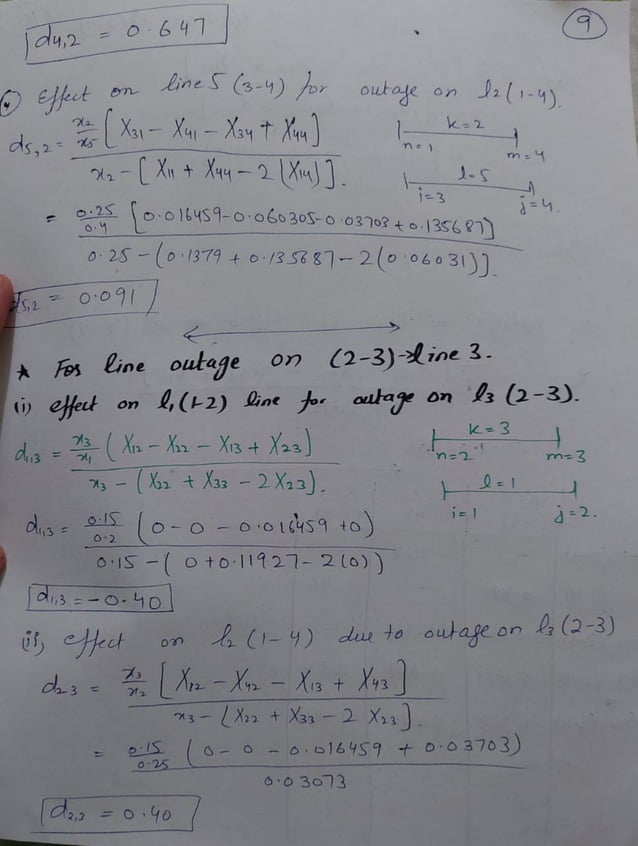 9
d4,2 = 0.647
Effect on line 5 (3-4) for outage on l2 (1-4).
d5,2 = x2/x5 [X31 - X41 - X34 + X44] / x2 - [X11 + X44 - 2(X14)].
k=2
n=1 m=4
l=5
i=3 j=4.
= 0.25/0.4 [0.016459-0.060305-0.03703+0.135687] / 0.25 - (0.1379 + 0.135687 - 2(0.06031)].
d5,2 = 0.091
* For line outage on (2-3)→line 3.
(i) effect on l1 (1-2) line for outage on l3 (2-3).
d1,3 = x3/x1 (X12 - X22 - X13 + X23) / x3 - (X22 + X33 - 2X23).
k=3
n=2 m=3
l=1
i=1 j=2.
d1,3 = 0.15/0.2 (0-0-0.016459+0) / 0.15 - (0+0.11927-2(0))
d1,3 = -0.40
(ii) effect on l2 (1-4) due to outage on l3 (2-3)
d23 = x3/x2 [X12 - X42 - X13 + X43] / x3 - [X22 + X33 - 2 X23].
= 0.15/0.25 (0-0-0.016459 + 0.03703) / 0.03073
d2,3 = 0.40